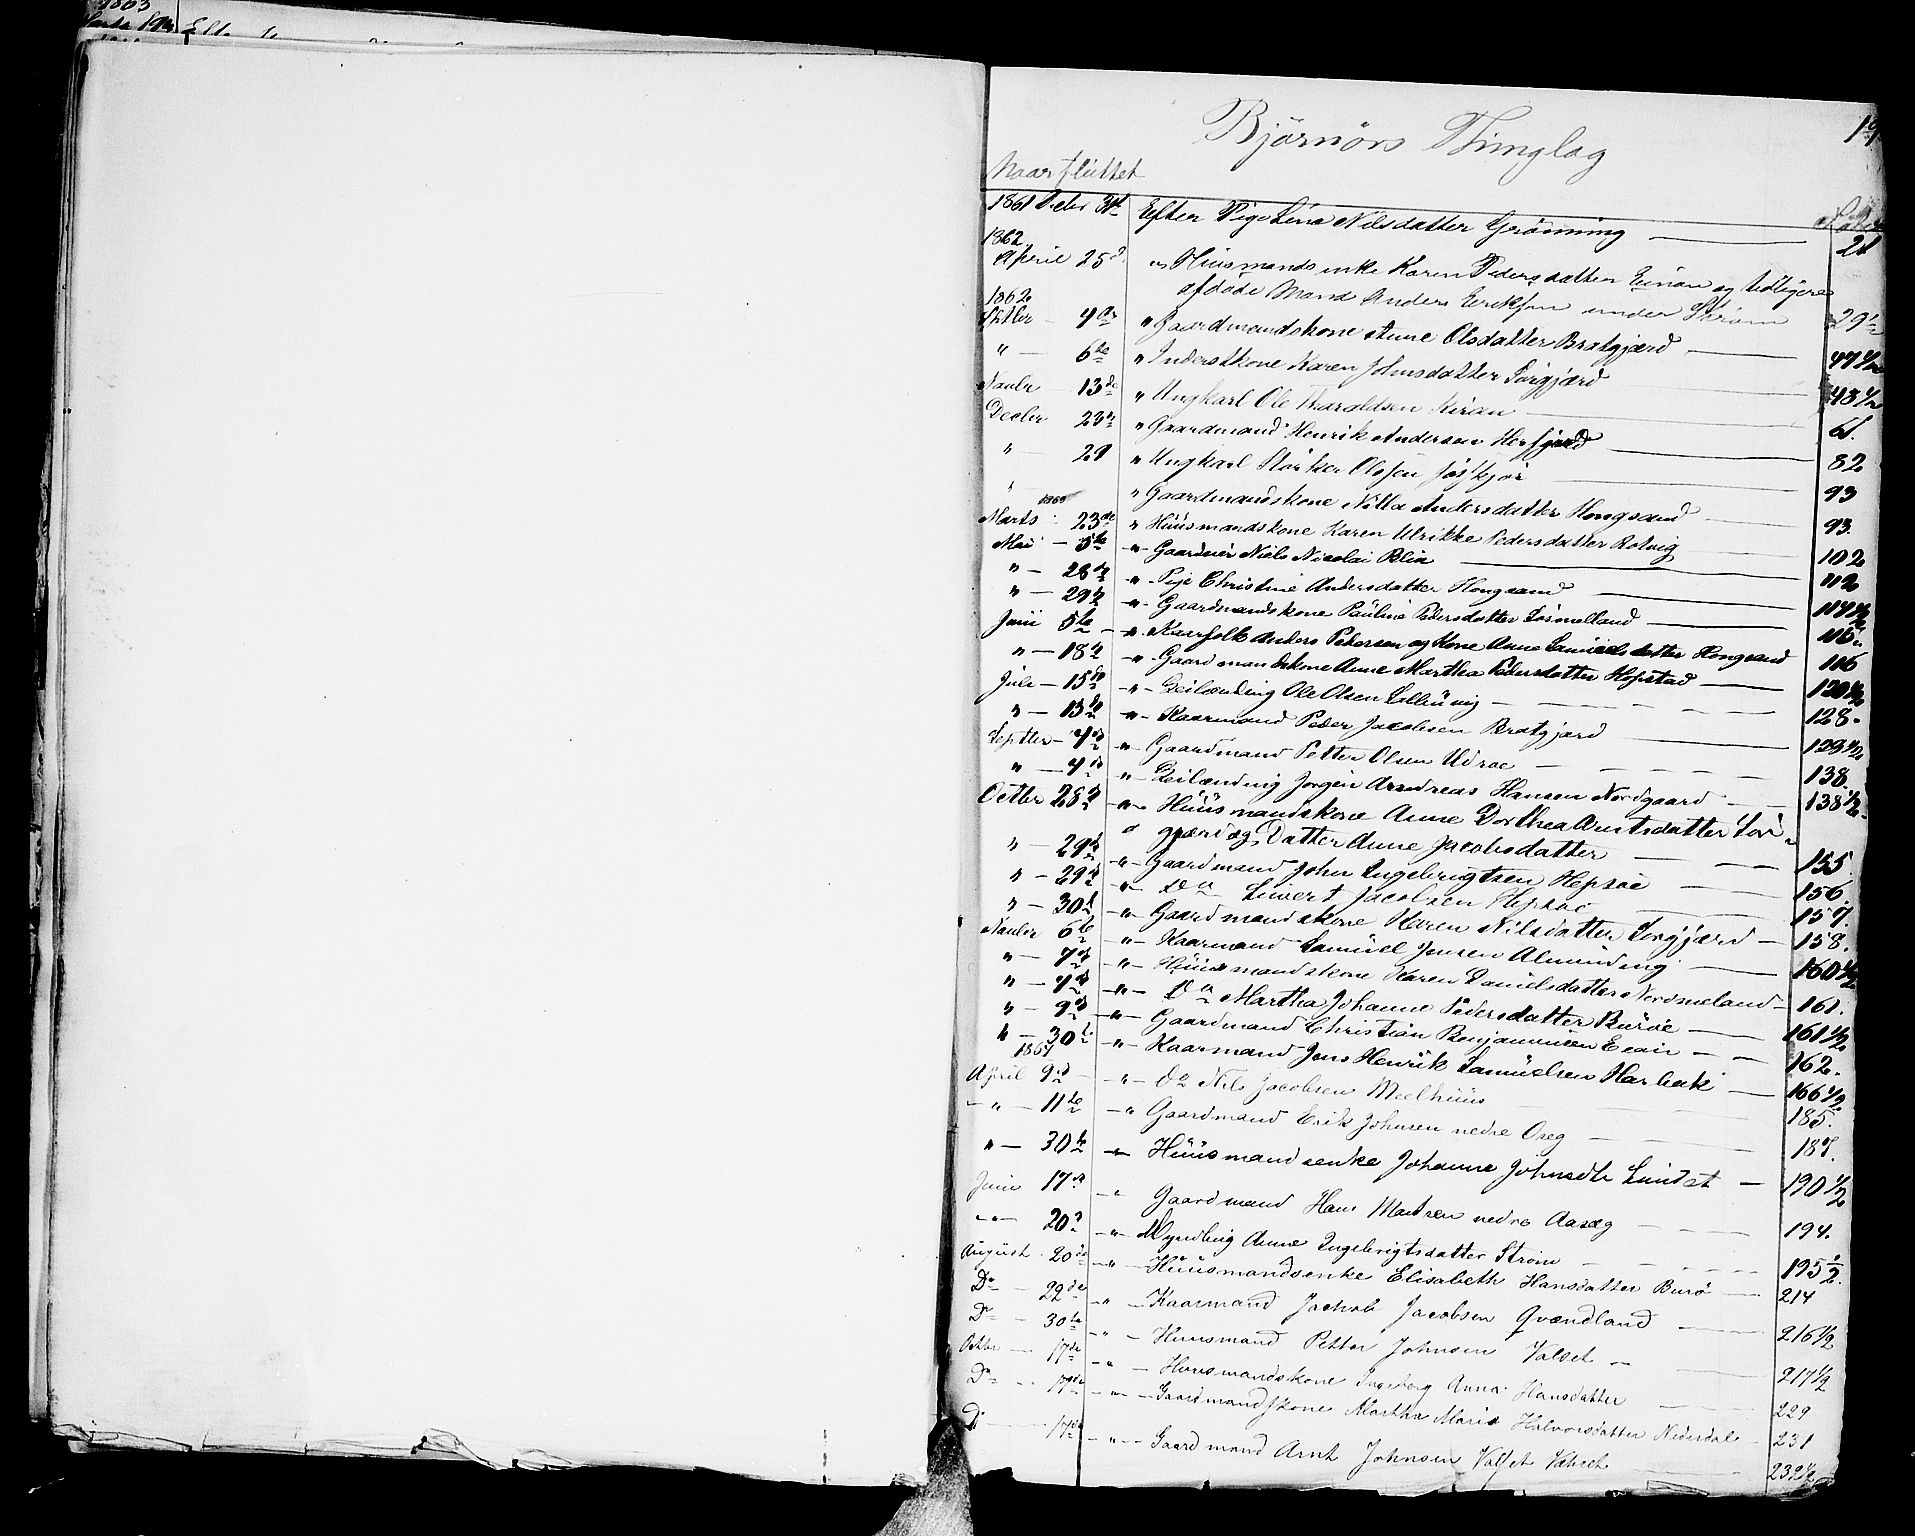 1863
Björnörs Thinglag
Naar fluttet
1861 Decbr 31te Efter Pige Lina Nilsdatter Grönning 21
1862
April 25d " Huusmandsenke Karen Pedersdatter og tidligere
afdöde Mand Anders Eriksen under Ström 29½
1862
4de " Gaardmandskone Anne Olsdatter Bratgjærd 47½
" 6te " Inderstkone Karen Johnsdatter Sörgjærd 48½
Novbr 13de " Ungkarl Ole Tharaldsen Kiran 61.
Decbr 23de " Gaardmand Henrik Andersen Herfjord 82
" 29 " Ungkarl Störker Olsen 93
" " Gaardmandskone Nilla Andersdatter Hongsand 93.
1863
Marts 23de " Huusmandskone Karen Ulrikke Pedersdatter Rolvig 102
Mai 5te " Gaardmd Niels Nicolai 112
" 28de " Pige Christine Andersdatter Hongsand 114½
" 29de " Gaardmandskone Pauline Pedersdatter Sörmelland 115
Juni 5te " Kaarfolk Anders Pedersen og Kone Anne Samuelsdatter Hongsand 116
" 18de " Gaardmandskone Anne Martha Pedersdatter Hopstad 120½
Juli 15de " Leilænding Ole Olsen 128
" 15de " Kaarmand Peder Jacobsen Bratgjærd 129½
Septbr 4de " Gaardmand Petter Olsen Udroe 138.
" 4de " Leilænding Jörgen Andreas Hansen Nordgaard 138½
Octbr 28de " Huusmandskone Anne Dorthea Arntsdatter Sör-
gjærd og Datter Anne Jacobsdatter 155.
" 29de " Gaardmand John Ingebrigtsen Hepsöe 156.
" 29de " Do Sivert Jacobsen Hepsöe 157.
" 30te " Gaardmandskone Karen Nilsdatter Sörgjærd 158.
Novbr 6te " Kaarmand Samuel Jensen Almenning 160½
" 7de " Huusmandskone Karen Danielsdatter Nordmeland 161.
" 7de " Do Martha Johanne Pedersdatter Buröe 161½
" 9de " Gaardmand Christian Benjaminsen 162.
" 30te " Kaarmand Jens Henrik Samuelsen Harbak 166½
1864
April 9de " Do Nils Jacobsen Meelhuus 185.
" 11te " Gaardmand Erik Johnsen nedre Oseg 187.
" 30te " Huusmandsenke Johanne Johnsdtr 190½
Juni 17de " Gaardmand Hans nedre Aaseg 194.
" 20de " Myndling Anne Ingebrigtsdatter Ström 195½
August 20de " Huusmandsenke Elisabeth Hansdatter Burö 214
Do 22de " Kaarmand Jachob Jacobsen Qvændland 216½
Do 30te " Huusmand Petter Johnsen Valset 217½
Octbr 17de " Huusmandskone Ingeborg Anna Hansdatter 229
Do 17de " Gaardmandskone Martha Maria Halvorsdatter Nedredal 231
Do 17de " Gaardmand Arnt Johnsen Valset Valset 232½